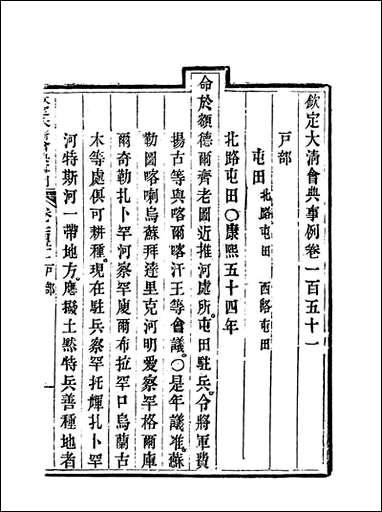 欽定大淸會典事例卷一百五十一
戶部
屯田 北路屯田 西路屯田
北路屯田○康熙五十四年
命於額德爾齊老圖近推河處所屯田駐兵令將軍費
揚古等與喀爾喀汗王等會議○是年議准蘇
勒圖喀喇烏蘇拜達里克河明愛察罕格爾庫
爾奇勒扎卜罕河察罕廋爾布拉罕口烏蘭古
木等處俱可耕種現在駐兵察罕托輝扎卜罕
河特斯河一帶地方應撥土默特兵善種地者
戶部